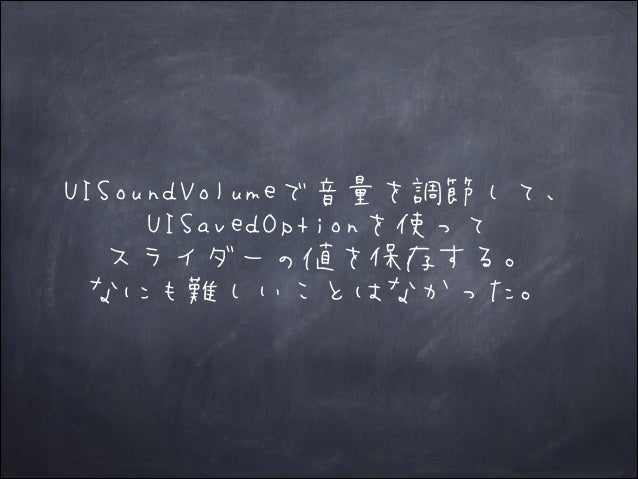 UISoundVolumeで音量を調節して、
UISavedOptionを使って
スライダーの値を保存する。
なにも難しいことはなかった。